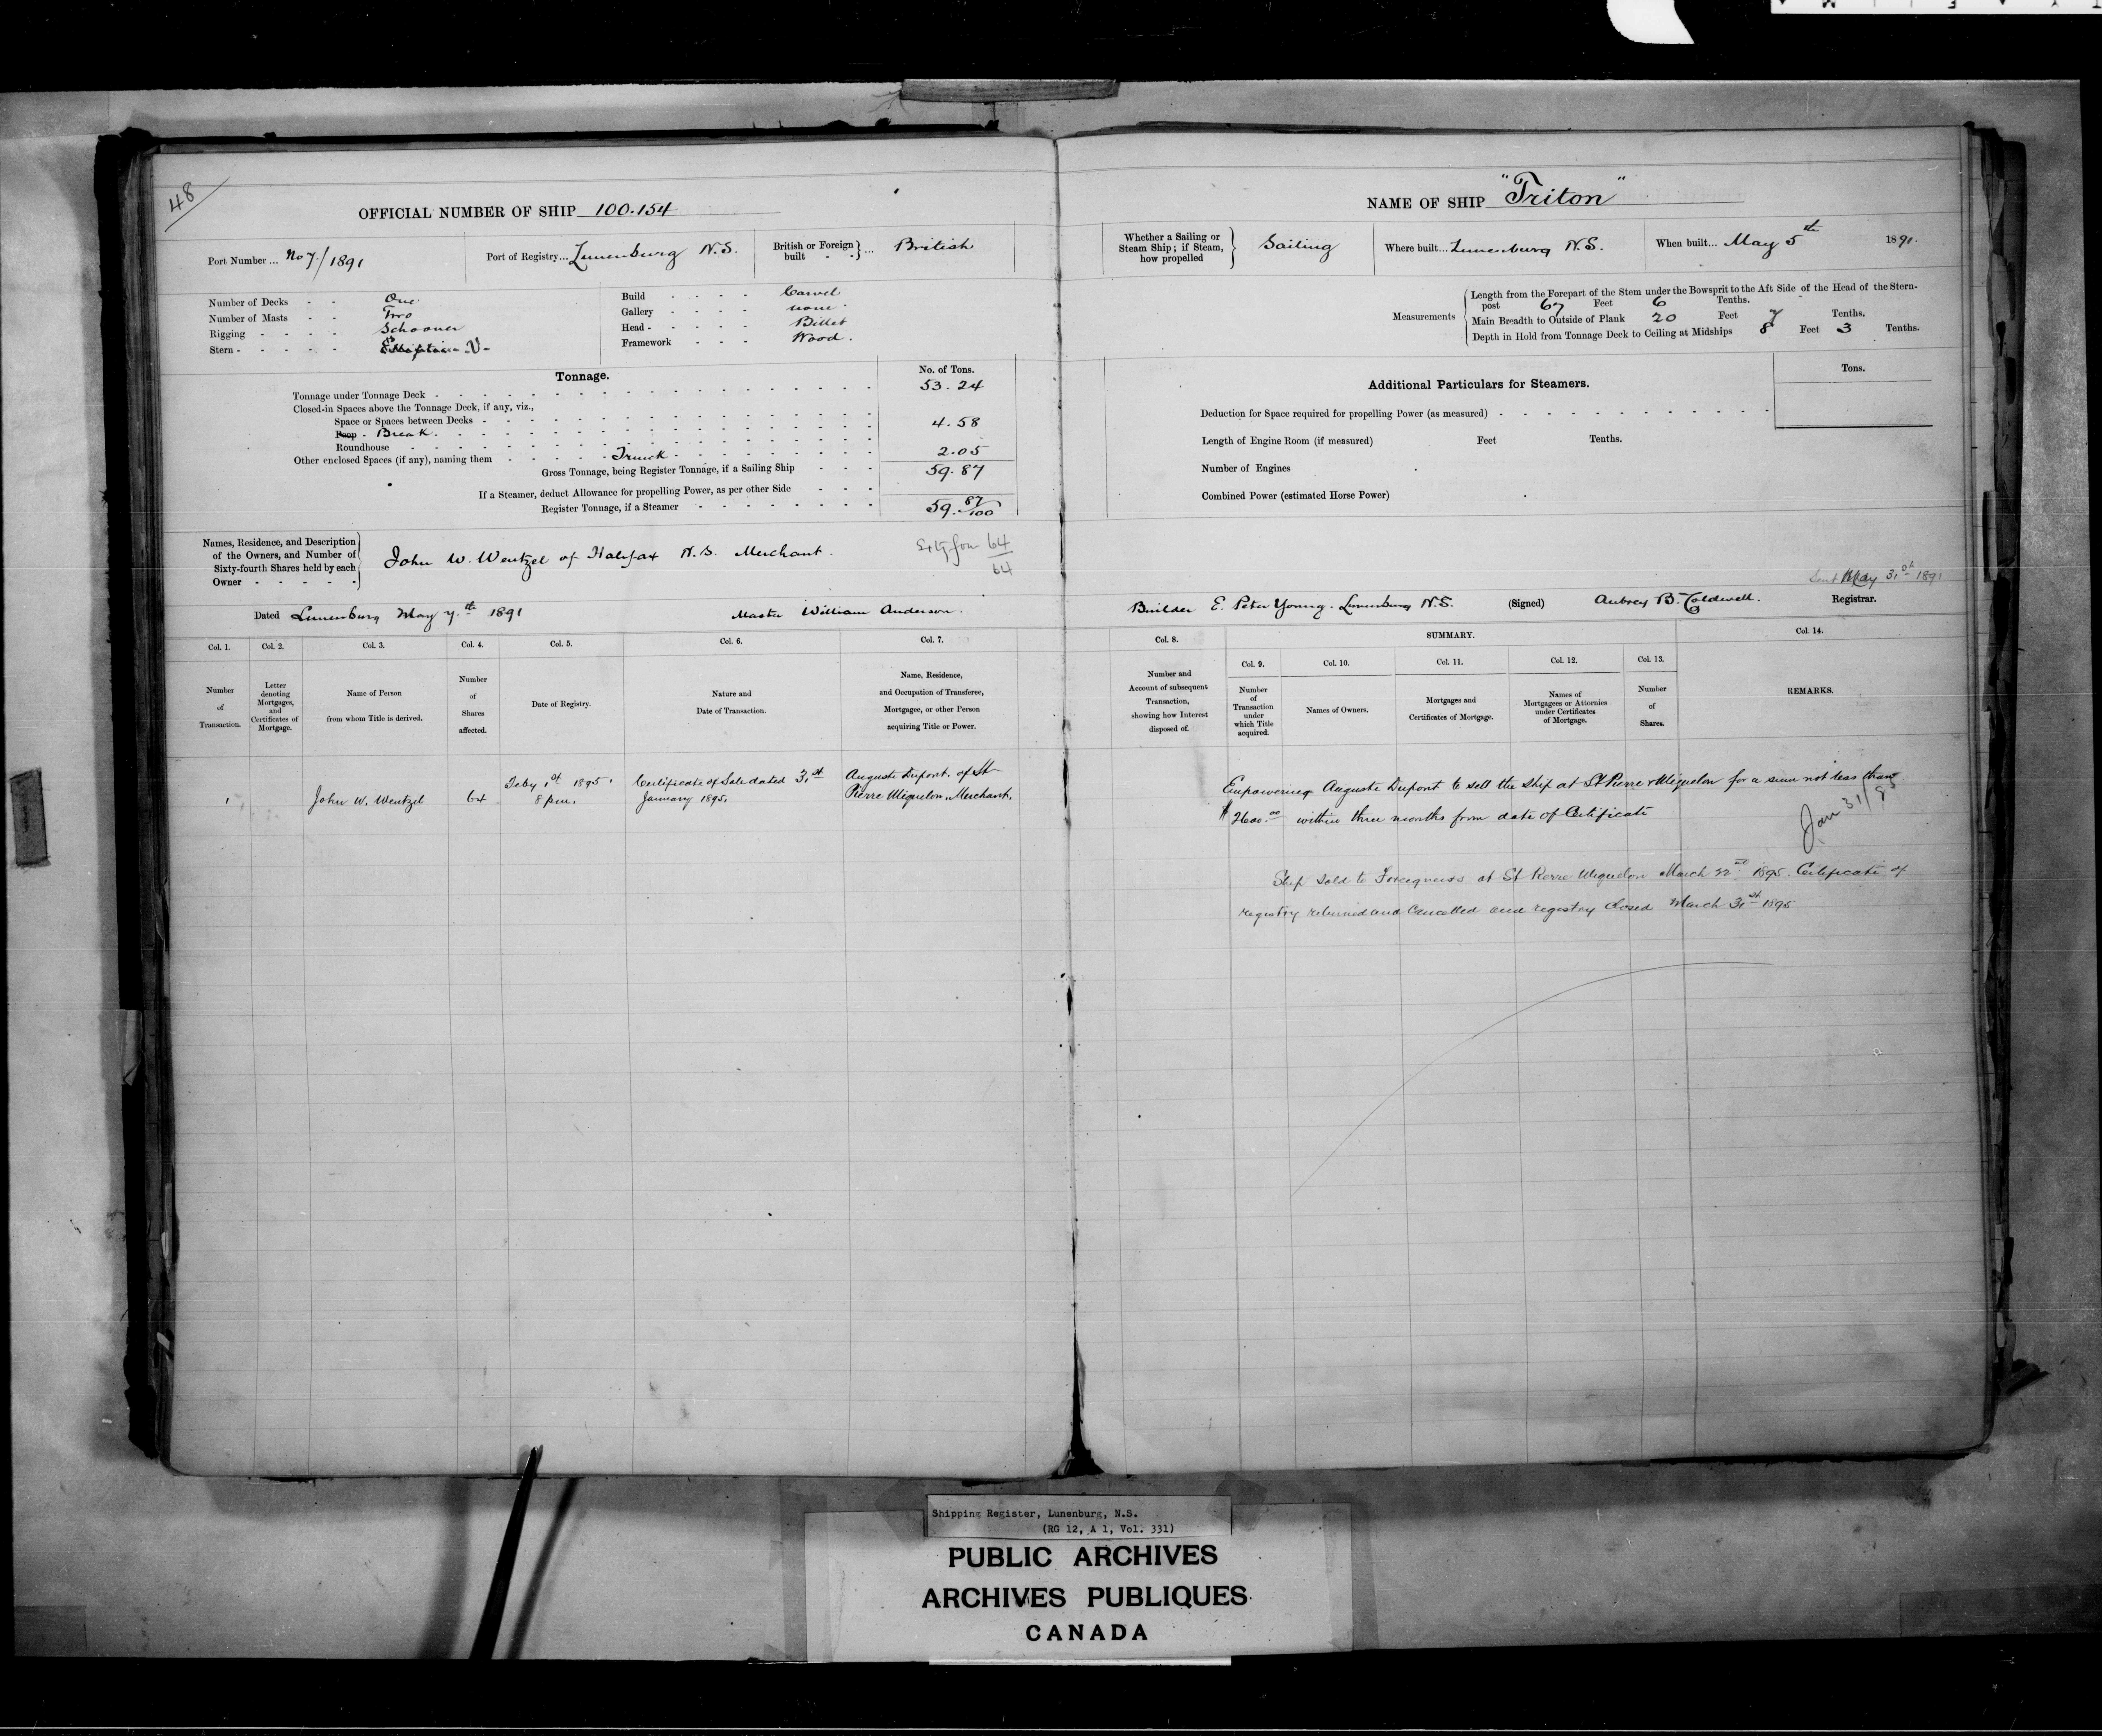 48
OFFICIAL NUMBER OF SHIP 100.154
Port Number ... No 7/1891
Port of Registry... Lunenburg N.S.
British or Foreign built - - } ... British
Number of Decks - - One
Number of Masts - - Two
Rigging - - - - Schooner
Stern - - - - - V-
Build - - - - Carvel
Gallery - - - - none
Head - - - - - Billet
Framework - - - Wood.
Tonnage.
No. of Tons.
Tonnage under Tonnage Deck - 53.24
Closed-in Spaces above the Tonnage Deck, if any, viz.,
Space or Spaces between Decks -
Poop - Break. 4.58
Roundhouse
Other enclosed Spaces (if any), naming them - Trunk - 2.05
Gross Tonnage, being Register Tonnage, if a Sailing Ship - - - 59.87
If a Steamer, deduct Allowance for propelling Power, as per other Side - - -
Register Tonnage, if a Steamer - 59. 87/100
Names, Residence, and Description
of the Owners, and Number of
Sixty-fourth Shares held by each
Owner - - - - -
John W. Wentzel of Halifax N.S. Merchant. Sixty four 64/64
Dated Lunenburg May 7.th 1891 Master William Anderson.
Col. 1. Col. 2. Col. 3. Col. 4. Col. 5. Col. 6. Col. 7.
Number of Transaction.
Letter denoting Mortgages, and Certificates of Mortgage.
Name of Person from whom Title is derived.
Number of Shares affected.
Date of Registry.
Nature and Date of Transaction.
Name, Residence, and Occupation of Transferee, Mortgagee, or other Person acquiring Title or Power.
1 John W. Wentzel 64
Feby 1st 1895.
8 p.m.
Certificate of Sale dated 31st
January 1895.
Auguste Dupont. of St
Pierre Miquelon, Merchant.
NAME OF SHIP "Triton"
Whether a Sailing or
Steam Ship; if Steam,
how propelled
Sailing
Where built... Lunenburg N.S.
When built... May 5th 1891.
Measurements
Length from the Forepart of the Stem under the Bowsprit to the Aft Side of the Head of the Stern-
post 67 Feet 6 Tenths.
Main Breadth to Outside of Plank 20 Feet 7 Tenths.
Depth in Hold from Tonnage Deck to Ceiling at Midships 8 Feet 3 Tenths.
Additional Particulars for Steamers.
Tons.
Deduction for Space required for propelling Power (as measured) -
Length of Engine Room (if measured) Feet Tenths.
Number of Engines
Combined Power (estimated Horse Power)
Sent May 31st 1891
Builder E. Peter Young. Lunenburg N.S. (Signed) Aubrey B. Coldwell. Registrar.
Col. 8. SUMMARY. Col. 14.
Col. 9. Col. 10. Col. 11. Col. 12. Col. 13.
Number and Account of subsequent Transaction, showing how Interest disposed of.
Number of Transaction under which Title acquired.
Names of Owners.
Mortgages and Certificates of Mortgage.
Names of Mortgagees or Attornies under Certificates of Mortgage.
Number of Shares.
REMARKS.
Empowering Auguste Dupont to sell the ship at St Pierre & Miquelon for a sum not less than
$2600.00 within three months from date of Certificate
Jan 31/95
Ship sold to Foreigners at St Pierre Miquelon March 22nd 1895. Certificate of
registry returned and Cancelled and registry closed March 31st 1895
Shipping Register, Lunenburg, N.S.
(RG 12, A 1, Vol. 331)
PUBLIC ARCHIVES
ARCHIVES PUBLIQUES
CANADA